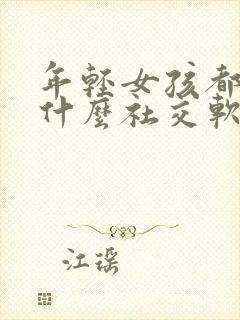 年輕女孩都
什麼社交軟
江瑤